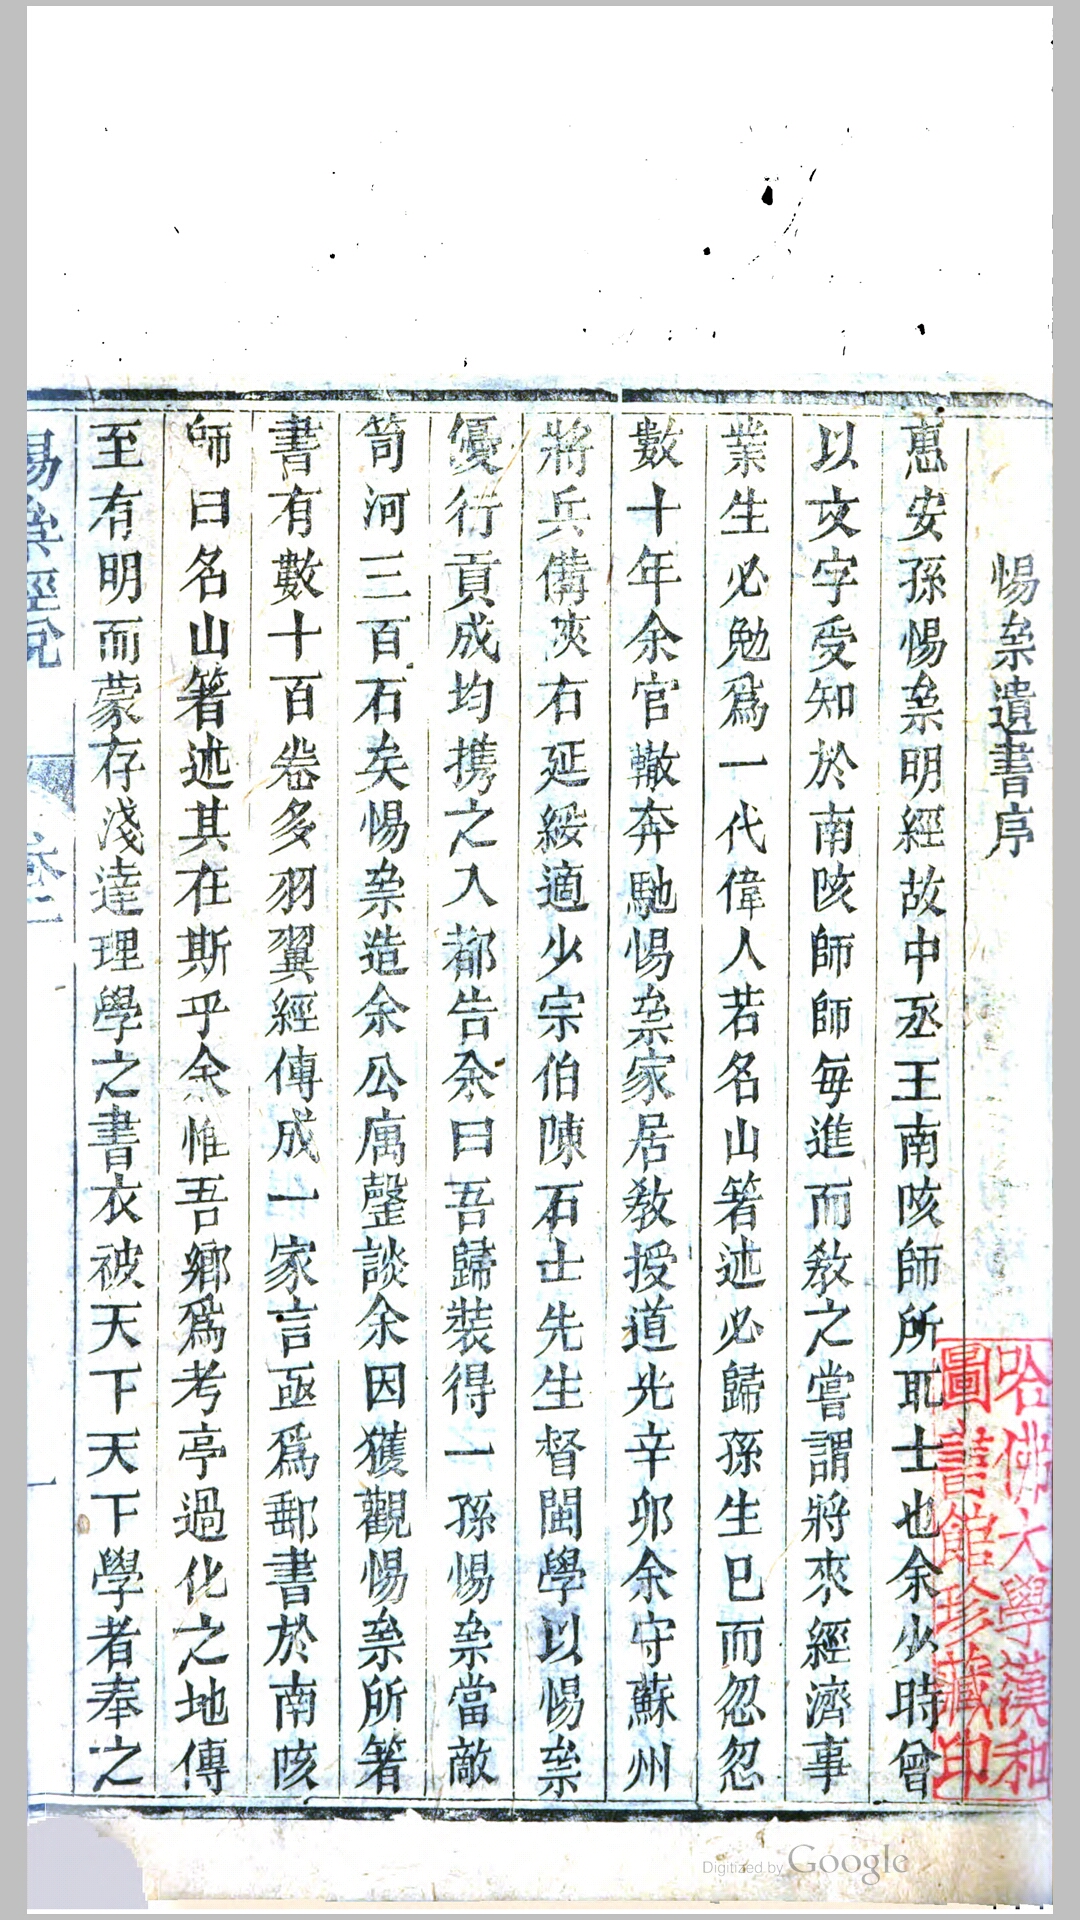 惕齋遺書序
惠安孫惕齋明經故中丞王南陔師所取士也余少時曾
以文字受知於南陔師師每進而教之嘗謂將來經濟事
業生必勉爲一代偉人若名山箸述必歸孫生已而忽忽
數十年余官轍奔馳惕齋家居教授道光辛卯余守蘇州
將兵備陝右延綏適少宗伯陳石士先生督閩學以惕齋
優行貢成均携之入都告余曰吾歸裝得一孫惕齋當敵
笥河三百石矣惕齋造余公廨罄談余因獲觀惕齋所箸
書有數十百卷多羽翼經傳成一家言亟爲郵書於南陔
師曰名山箸述其在斯乎余惟吾鄉爲考亭過化之地傳
至有明而蒙存淺達理學之書衣被天下天下學者奉之
惕齋經說
卷一
一
哈佛大學漢和
圖書館珍藏印
Digitized by Google